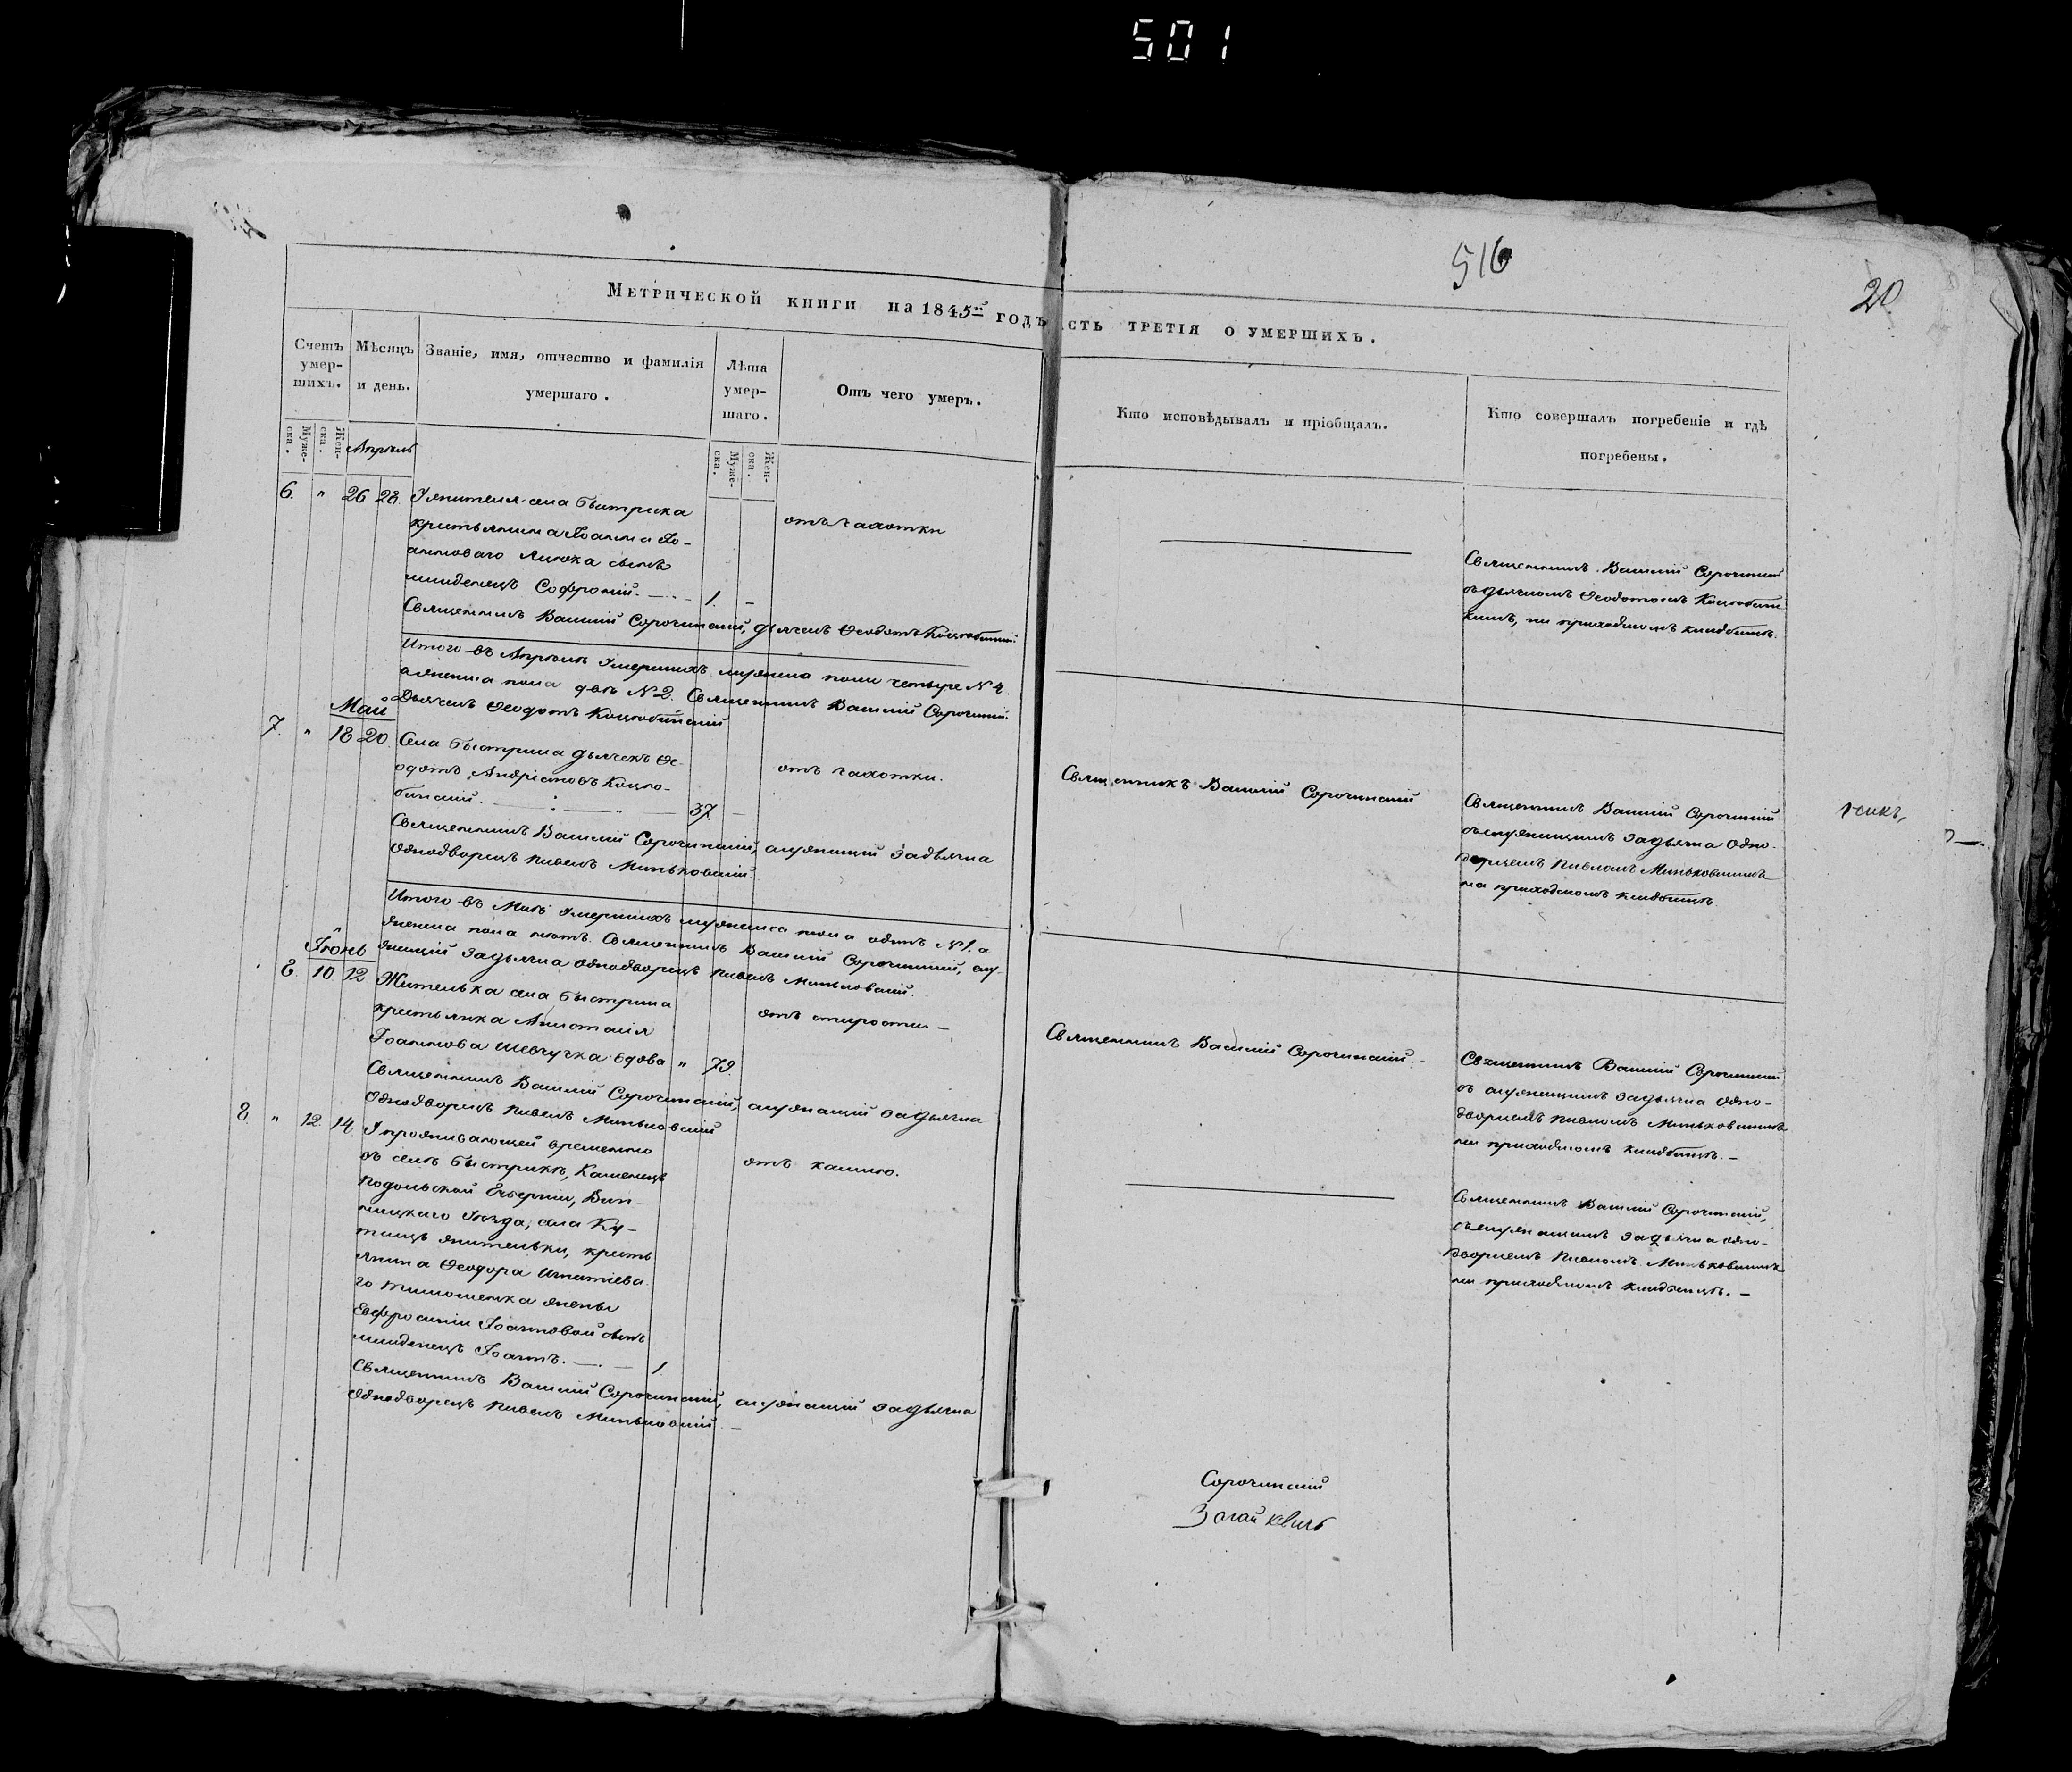 501
516
20
Метрической книги на 1845й годъ
сть третія о умершихъ.
Счетъ умер-шихъ.
Мѣсяцъ и день.
Званіе, имя, отчество и фамилія умершаго.
Лѣта умер-шаго.
Отъ чего умеръ.
Кто исповѣдывалъ и пріобщалъ.
Кто совершалъ погребеніе и гдѣ погребены.
Муже-ска.
Жен-ска.
Апрѣль
Муже-ска.
Жен-ска.
6. " 26 28. Жителя села Быстрика
отъ чахотки
крестьянина Іоанна Іо-
анноваго сынъ
младенецъ Софроній. 1. -
Священникъ Василій Сорочинскій
съ дьячкомъ Ѳеодотомъ Коцюбин
скимъ, на приходскомъ кладбищѣ.
Священникъ Василій Сорочинскій, дьячекъ Ѳеодотъ Коцюбинскій
Итого въ Апрѣлѣ умершихъ мужеска пола четыре №4.
а женска пола двѣ №2. Священникъ Василій Сорочинскій.
Дьячекъ Ѳеодотъ Коцюбинскій
Май
7. " 18 20. Села Быстрика дьячекъ Ѳе-
одотъ Андріановъ Коцю-
бинскій. 37. -
отъ чахотки.
Священникъ Василій Сорочинскій
Священникъ Василій Сорочинскій
съ служащимъ за дьячка одно-
дворцемъ Павломъ Миньковскимъ
на приходскомъ кладбищѣ
Священникъ Василій Сорочинскій, служащий за дьячка
Однодворецъ Павелъ Миньковскій.
Итого въ Маѣ умершихъ мужеска пола одинъ №1. а
женска пола нѣтъ. Священникъ Василій Сорочинскій, слу-
жащій за дьячка однодворецъ Павелъ Миньковскій.
Іюнь
8. 10 12 Жителька села Быстрика
крестьянка Анастасія
Іоаннова Шевчучка вдова " 79.
отъ старости -
Священникъ Василій Сорочинскій. -
Священникъ Василій Сорочинскій
съ служащимъ за дьячка одно-
дворцемъ Павломъ Миньковскимъ
на приходскомъ кладбищѣ. -
Священникъ Василій Сорочинскій, служащій за дьячка
Однодворецъ Павелъ Миньковскій
8 " 12 14. У проживающей временно
въ селѣ Быстрикѣ, Каменецъ
Подольской Губерніи, Вин-
ницкаго уѣзда, села Ку-
тищъ жительки, кресть
янина Ѳеодора Игнатіева
го Тимошенка жены
Евфросиніи Іоанновой сынъ
младенецъ Іоаннъ. 1
отъ кашлю.
Священникъ Василій Сорочинскій,
съ служащимъ за дьячка одно-
дворцемъ Павломъ Миньковскимъ
на приходскомъ кладбищѣ. -
Священникъ Василій Сорочинскій, служащій за дьячка
Однодворецъ Павелъ Миньковскій. -
Сорочинскій